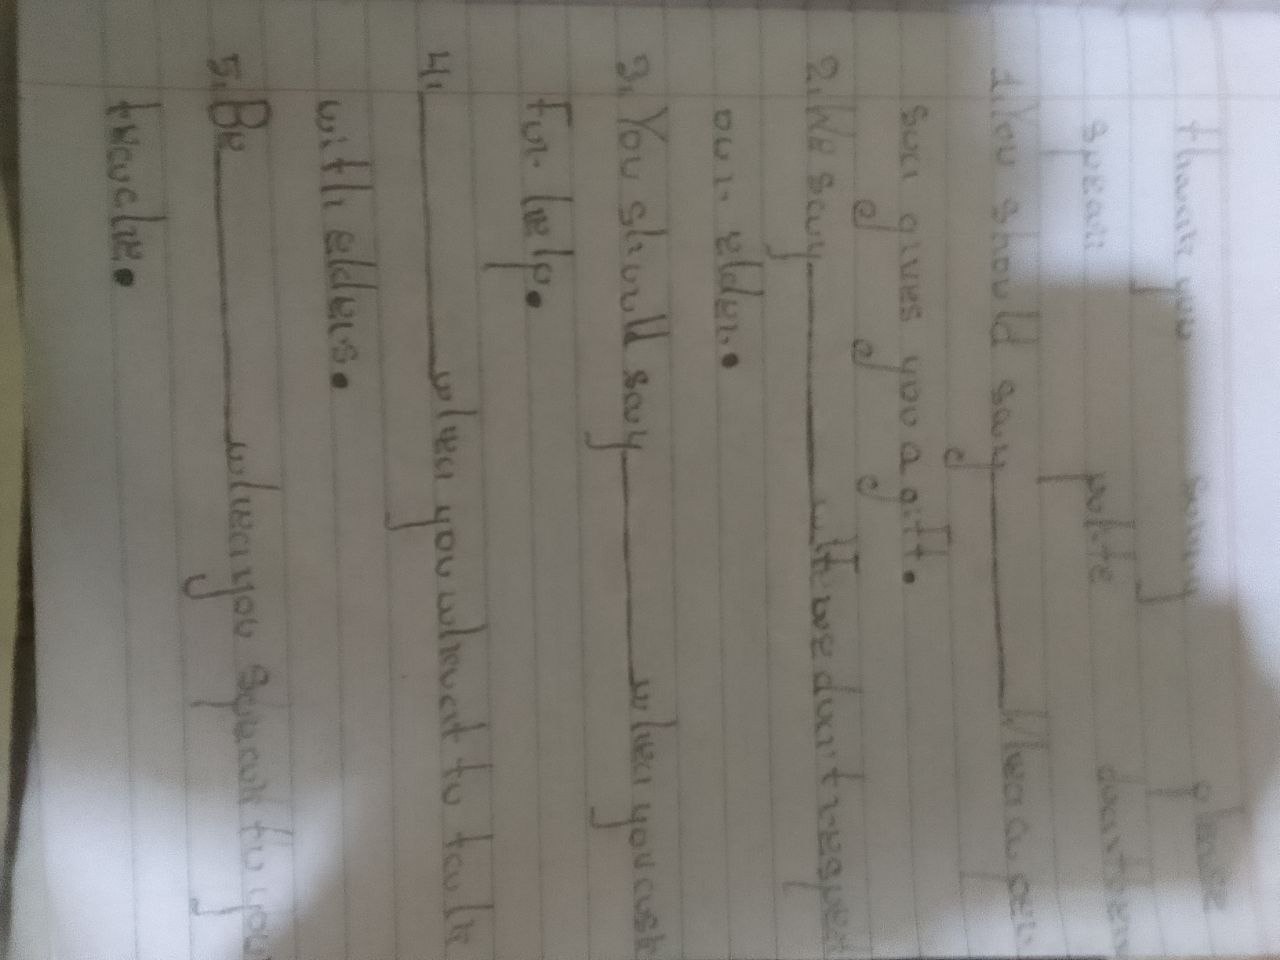 thank you sorry please
speak polite don't
1. You should say ______ When a per
son gives you a gift.
2. We say ______ if we don't respect
our elder.
3. You should say ______ when you ask
For help.
4. ______ when you want to talk
with elders.
5. Be ______ when you speak to your
teacher.